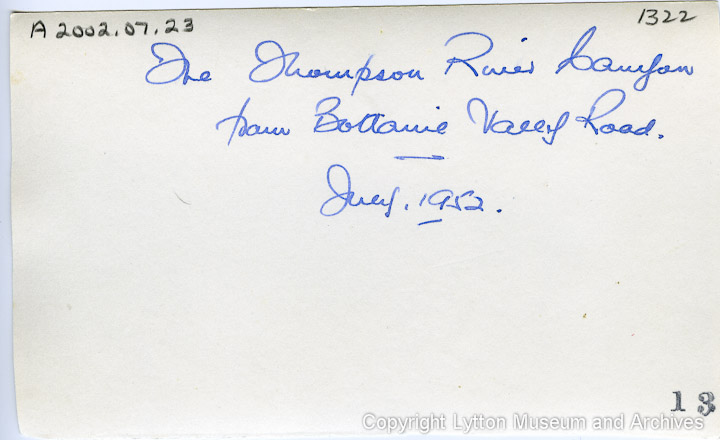 A 2002.07.23
1322
The Thompson River Canyon
from Bottanie Valley Road.
July, 1952.
13
Copyright Lytton Museum and Archives